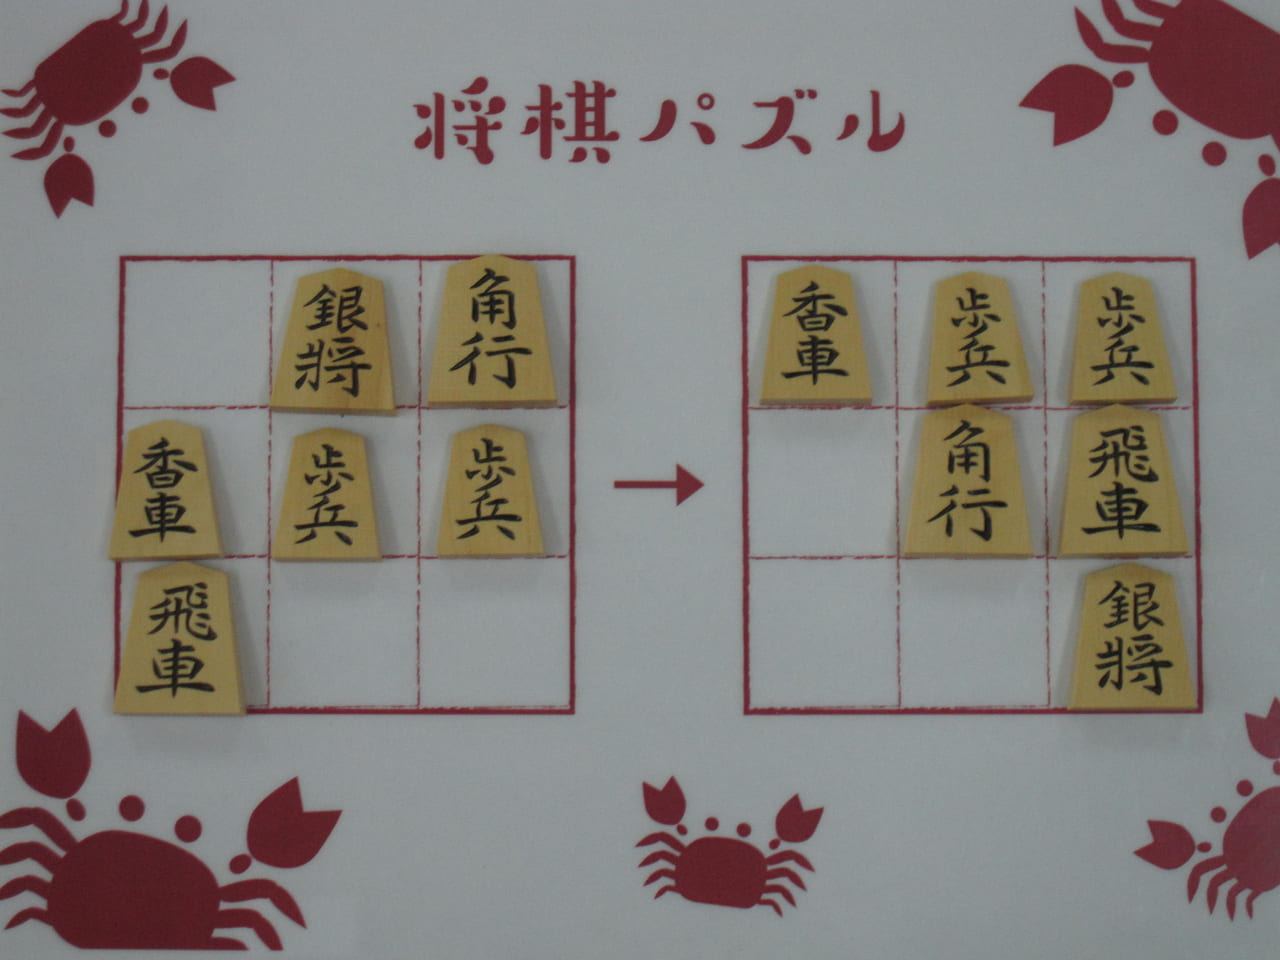 将棋パズル
銀将 角行
香車 歩兵 歩兵
飛車
香車 歩兵 歩兵
角行 飛車
銀将